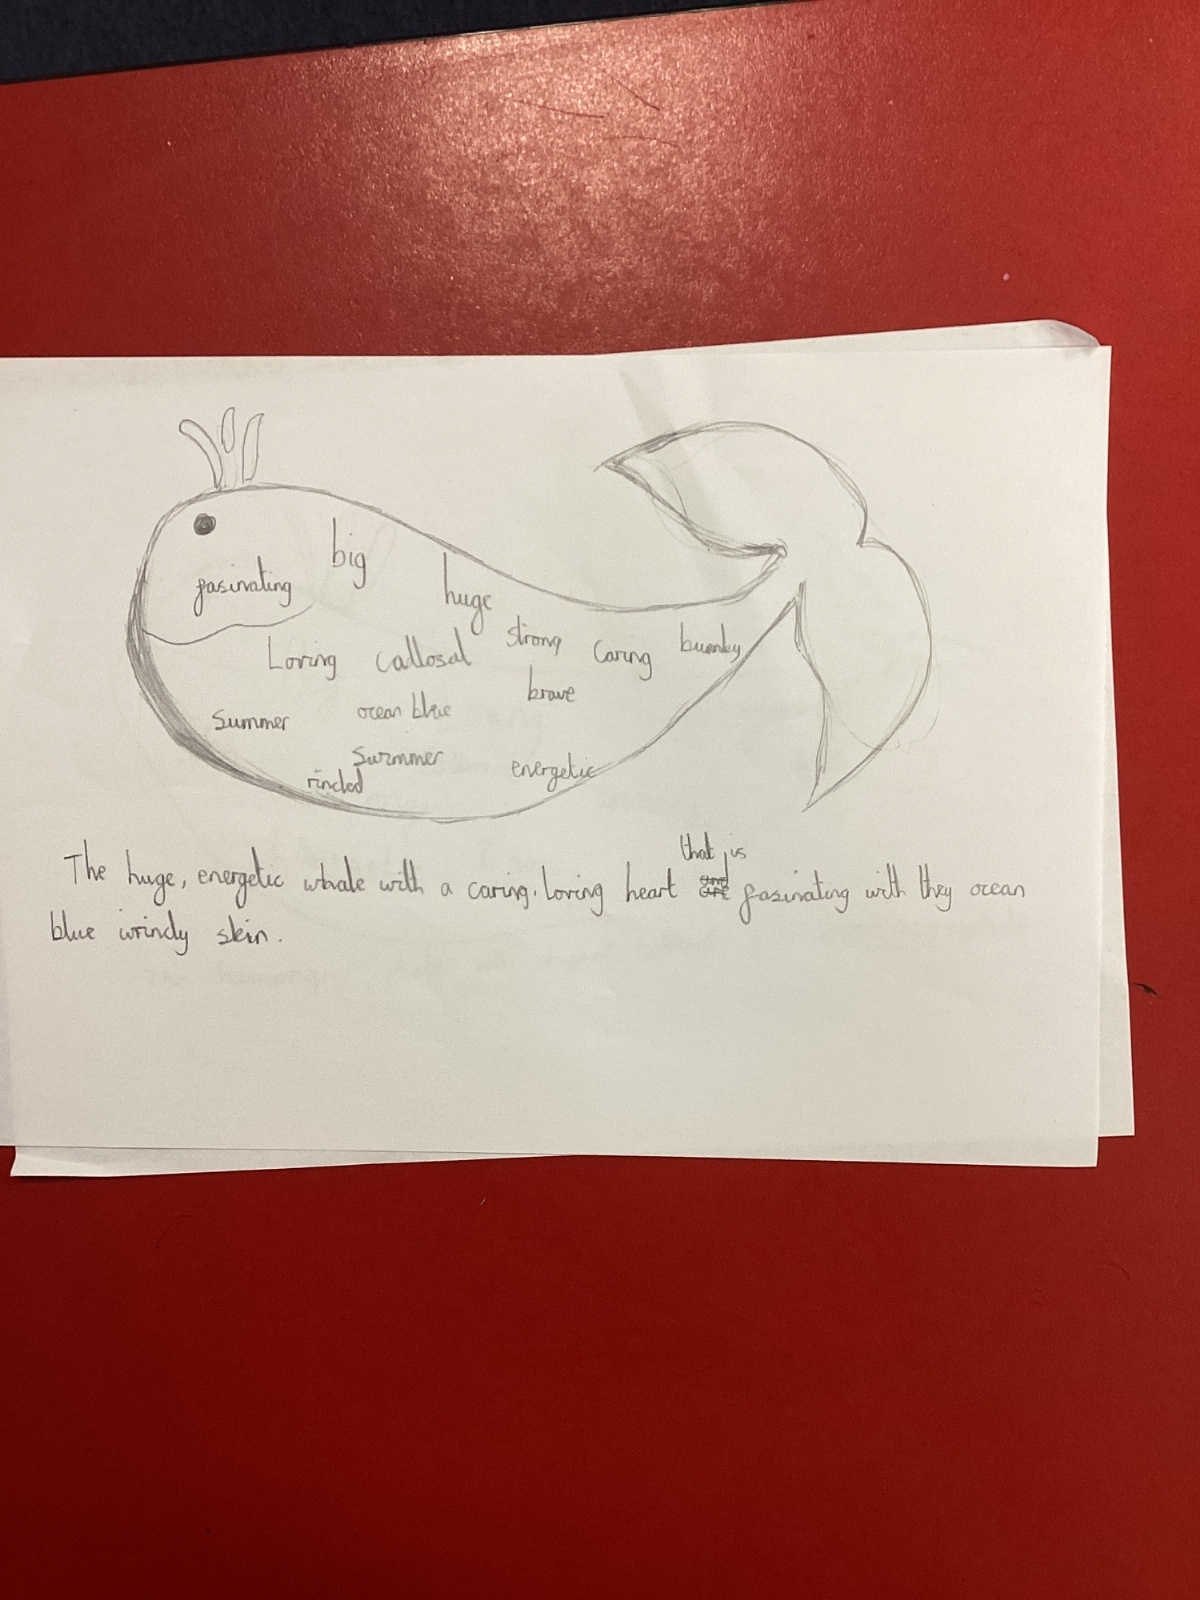 big
fasinating
huge
strong
Loving callosal caring
brave
Summer ocean blue
Swimmer
energetic
that is
The huge, energetic whale with a caring, loving heart fasinating with they ocean
blue wrindy skin.